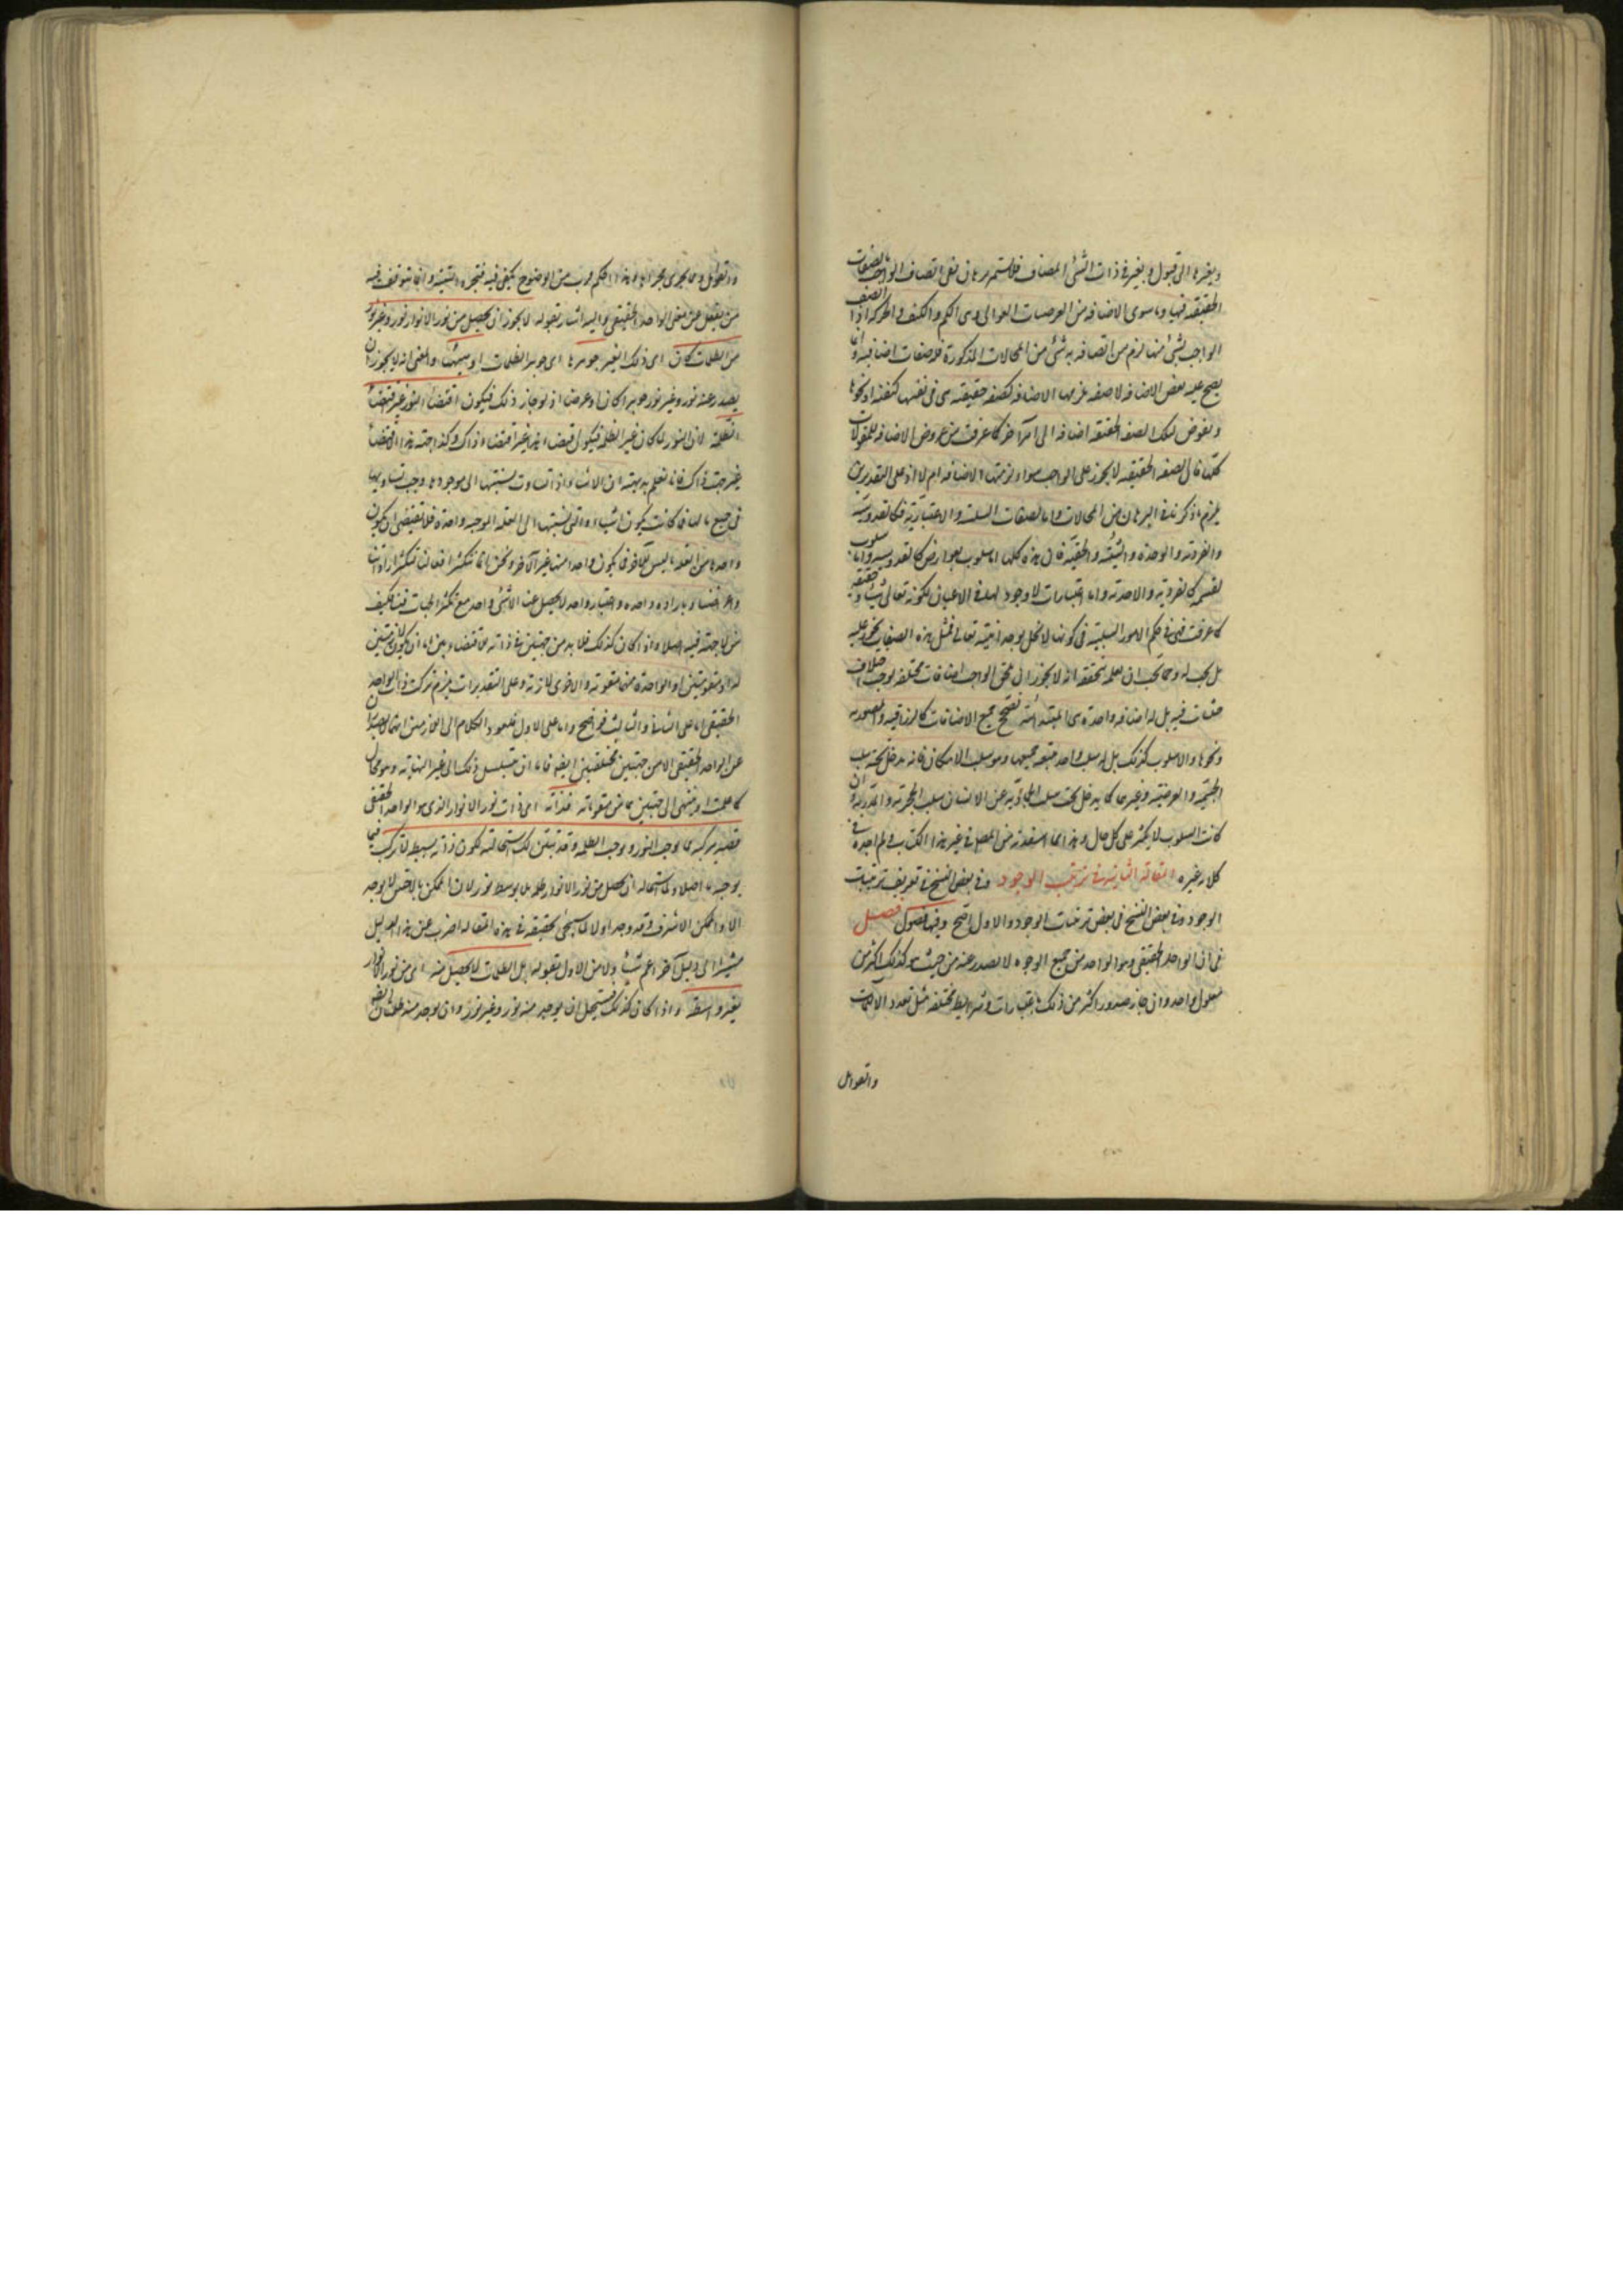 وبغيرها الى قبول وبغير في ذات الشئ المضاف فلاستمر برهان نفى اتصاف الواجب بالصفات
الحقيقية فيها وما سوى الاضافه من العرضيات العوالى وهى الكم والكيف والحركة اذ لو اتصف
الواجب بشئ منها لزم من اتصافه به شئ من المحالات المذكورة فلا صفات اضافية وانما
يصح عليه بعض الاضافه لا صفه يلزمها الاضافه كصفه حقيقيه هى فى نفسها كيفيه او نحوها
وتعرض لتلك الصفه الحقيقيه اضافه الى امر آخر كما عرفت من عروض الاضافه للمقولات
كلها فان الصفه الحقيقيه لا يجوز على الواجب سواء لزمتها الاضافه ام لا اذ على التقديرين
يلزم ما ذكرنا فى البرهان من المحالات واما الصفات السلبية والاعتبارية فكالقدوسية
والفردية والوحدة والشيئية والحقيقة فان هذه كلها اما سلوب لعوارض كالقدوسية واما سلوب
لقسمة كالفردية والاحدية واما اعتبارات لا وجود لها فى الاعيان ككونه تعالى شيئا وحقيقة
كما عرفت فهى فى حكم الامور السلبية فى كونها لا تخل بوحدانيته تعالى فمثل هذه الصفات يجوز عليه
بل يجب له ومما يجب ان نعلمه ونحققه انه لا يجوز ان يلحق الواجب اضافات مختلفه توجب اختلاف
حيثيات فيه بل له اضافه واحدة هى المبدئية تصحح جميع الاضافات كالرازقيه والمصوريه
ونحوها ولا سلوب كذلك بل له سلب واحد يتبعه جميعها وهو سلب الامكان فانه يدخل تحته سلب
الجسمية والعرضية وغيرهما كما يدخل تحت سلب الجمادية عن الانسان سلب الحجرية والمدرية وان
كانت السلوب لا تتكثر على كل حال وهذا مما استفدته من المصنف فى غير هذا الكتاب ولم اجده فى
كلام غيره المقالة الثانية فى ترتيب الوجود وفى بعض النسخ فى تعريف ترتيبات
الوجود وفى بعض النسخ فى بعض ترتيبات الوجود والاول اصح وفيها فصول فصل
فى ان الواحد الحقيقى وهو الواحد من جميع الوجوه لا يصدر عنه من حيث هو كذلك اكثر من
معلول واحد وان جاز صدور اكثر من ذلك باعتبارات وشرايط مختلفه مثل تعدد الآلات
والقوابل
والقوابل وما يجرى مجراها وهذا الحكم قريب من الوضوح يكفى فيه مجرد التنبيه وانما يتوقف فيه
من يغفل عن معنى الواحد الحقيقى واليه اشار بقوله لا يجوز ان يحصل من نور الانوار نور وغير نور
من الظلمات كان اى ذلك الغير جوهرها اى جوهر الظلمات او هيئتها والمعنى انه لا يجوز ان
يصدر عنه نور وغير نور جوهرا كان او عرضا اذ لو جاز ذلك فيكون اقتضاء النور غير اقتضاء
الظلمة لان النور لما كان غير الظلمة فيكون اقتضاء هذا غير اقتضاء ذاك وكذا جهة هذا الاقتضاء
غير جهة ذاك فانا نعلم بديهية ان الاشياء اذا تساوت نسبتها الى موجودها وجب تساويها
فى جميع ما لها فما كانت يكون اشياء والتى نسبتها الى العلة الموجبه واحدة فلا يقتضى ان يكون
واحدها من العلة ما ليس للآخر فما يكون واحد منها غير الآخر ونحن انما تتكثر افعالنا لتكثر اراداتنا
واعراضنا وبارادة واحدة واعتبار واحد لا يحصل عنا الا شئ واحد مع تكثر الجهات فينا فكيف
من لا جهة فيه اصلا واذا كان كذلك فلا بد من جهتين فى ذاته تقتضى وهما اما ان يكونا لازمتين
له او مقومتين او الواحدة منهما مقومة والاخرى لازمة وعلى التقديرات يلزم تركب ذات الواحد
الحقيقى اما على الثانى والثالث فواضح واما على الاول فلعود الكلام الى اللازمتين انهما لا يصدران
عن الواحد الحقيقى الا من جهتين مختلفتين ايضا فاما ان يتسلسل ذلك الى غير النهاية وهو محال
كما علمت او ينتهى الى جهتين هما من مقوماته فذاته اى ذات نور الانوار الذى هو الواحد الحقيقى
تصير مركبة مما يوجب النور ويوجب الظلمة وقد تبين لك استحالته لكون ذاته بسيطة لا تركب فيها
بوجه ما اصلا وكما استحاله ان يحصل من نور الانوار ظلمة بلا توسط نور لان الممكن الاخس لا يوجد
الا والممكن الاشرف وقد وجد اولا كما سيجئ تحقيقه فى هذه المقاله اضرب عن هذا الدليل
مشيرا الى دليل آخر اعم تناولا من الاول بقوله بل الظلمات لا يحصل منه اى من نور الانوار
بغير واسطة واذا كان كذلك فيستحيل ان يوجد منه نور وغير نور وان يوجد منه ظلمتان ايضا